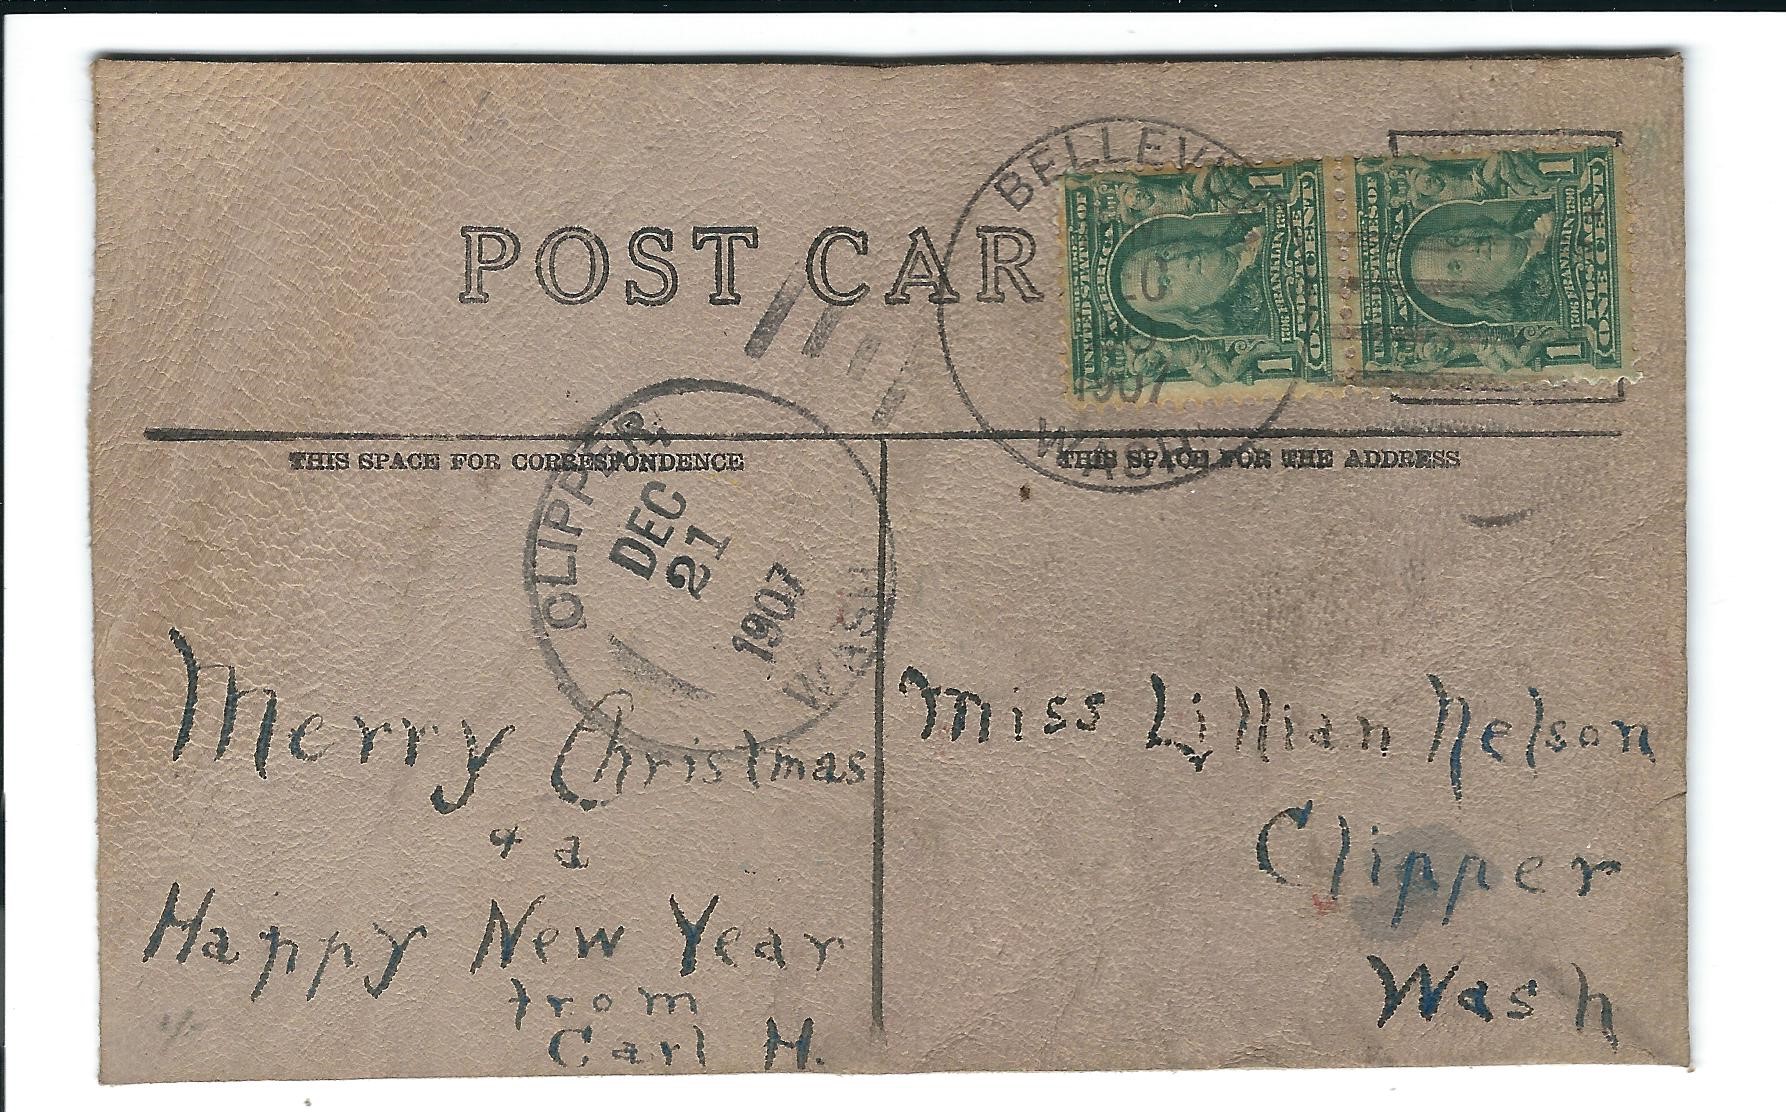 POST CAR
BELLEV
1907
WASH
UNITED STATES OF AMERICA
1706 FRANKLIN 1790
POSTAGE
ONE CENT
1 1
UNITED STATES OF AMERICA
1706 FRANKLIN 1790
POSTAGE
ONE CENT
1 1
THIS SPACE FOR CORRESPONDENCE
THIS SPACE FOR THE ADDRESS
CLIPPER
DEC
21
1907
WASH
Merry Christmas
& a
Happy New Year
from
Carl H.
Miss Lillian Nelson
Clipper
Wash